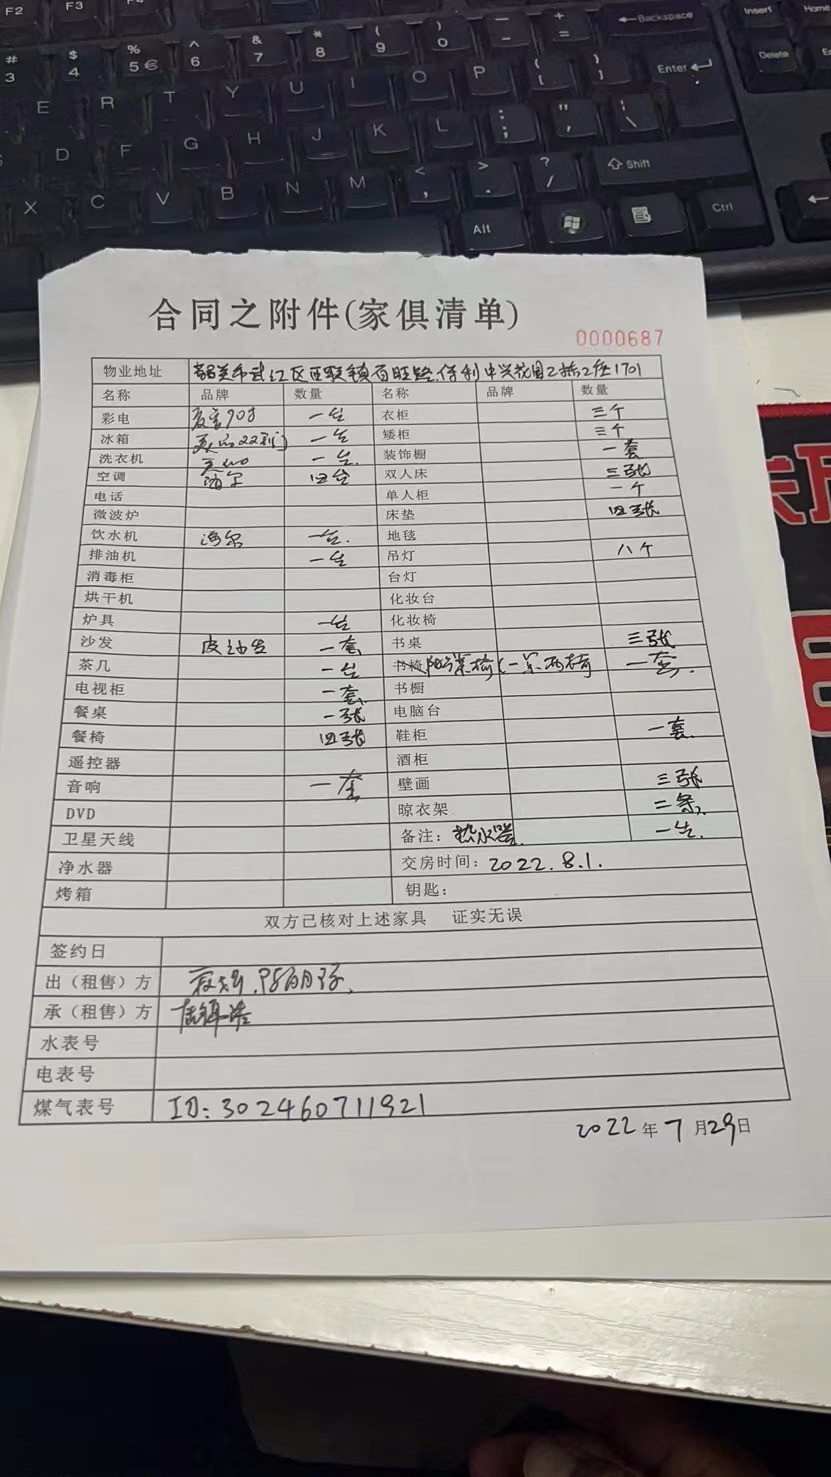 F2 F3
# 3 $ 4 % 5 € ^ 6 & 7 * 8 ( 9 ) 0 - + = Backspace Insert Home
E R T Y U I O P { [ } ] Enter Delete
D F G H J K L : ; " ' | \
X C V B N M < , > . ? / Shift
Alt Ctrl
合同之附件(家俱清单)
0000687
物业地址 韶关市武江区西联镇百旺路.保利中兴花园2栋2座1701
名称 品牌 数量 名称 品牌 数量
彩电 一台 衣柜 三个
冰箱 一台 矮柜 三个
洗衣机 一台. 装饰橱 一套
空调 海尔 四台 双人床 三张
电话 单人柜 一个
微波炉 床垫 四张
饮水机 海尔 一台. 地毯
排油机 一台 吊灯 八个
消毒柜 台灯
烘干机 化妆台
炉具 一台 化妆椅
沙发 皮沙发 一套 书桌 三张
茶几 一台 书椅 阳台茶椅(一茶两椅 一套.
电视柜 一套 书橱
餐桌 一张 电脑台
餐椅 四张 鞋柜 一套.
遥控器 酒柜
音响 一套 壁画 三张
DVD 晾衣架 二条
卫星天线 备注: 热水器 一台.
净水器 交房时间: 2022.8.1.
烤箱 钥匙:
双方已核对上述家具 证实无误
签约日
出（租售）方
承（租售）方
水表号
电表号
煤气表号 ID: 302460711921
2022年7月29日